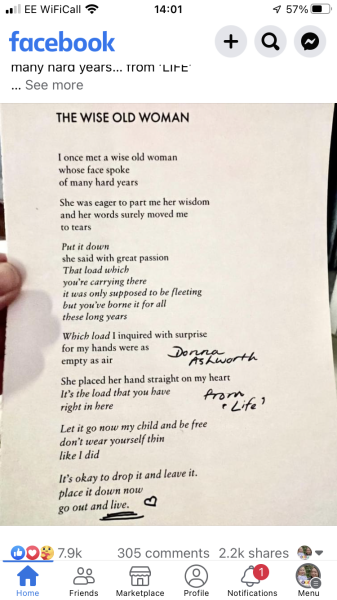 EE WiFiCall
14:01
57%
facebook
many hard years... from 'LIFE'
... See more
THE WISE OLD WOMAN
I once met a wise old woman
whose face spoke
of many hard years
She was eager to part me her wisdom
and her words surely moved me
to tears
Put it down
she said with great passion
That load which
you're carrying there
it was only supposed to be fleeting
but you've borne it for all
these long years
Which load I inquired with surprise
for my hands were as
empty as air
Donna
Ashworth
She placed her hand straight on my heart
It's the load that you have
right in here
from
'Life'
Let it go now my child and be free
don't wear yourself thin
like I did
It's okay to drop it and leave it.
place it down now
go out and live.
7.9k
305 comments
2.2k shares
1
Home
Friends
Marketplace
Profile
Notifications
Menu